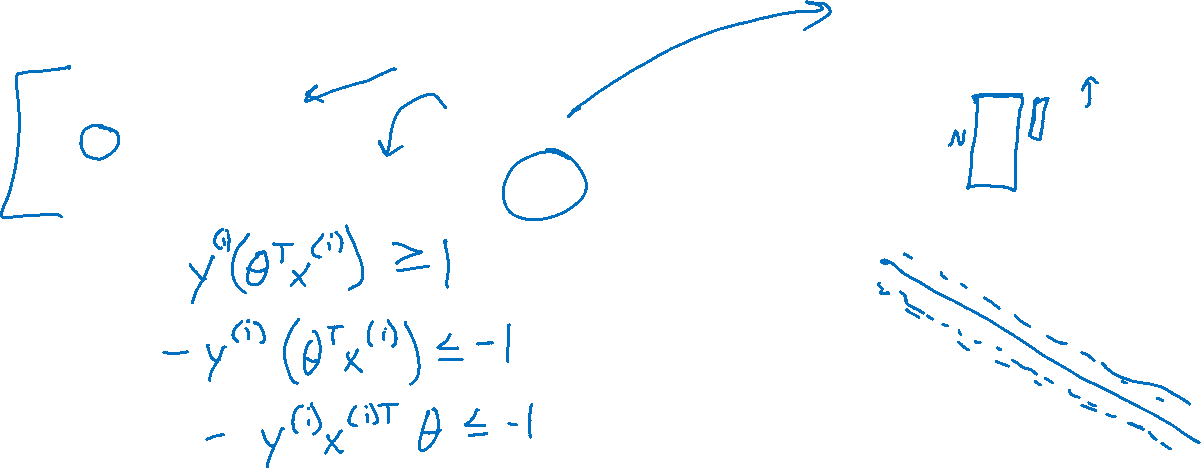 N
y^{(i)}(θ^T x^{(i)}) ≥ 1
- y^{(i)} (θ^T x^{(i)}) ≤ -1
- y^{(i)} x^{(i)T} θ ≤ -1